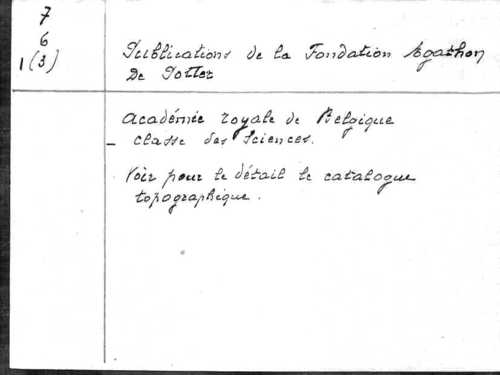 7
6
1(3)
Publications de la Fondation Agathon
De Potter
Académie royale de Belgique
- classe des Sciences.
Voir pour le détail le catalogue
topographique.